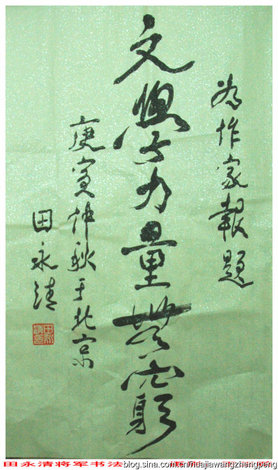 為作家報題
文學力量無窮
庚寅仲秋于北京
田永清
田永清将军书法
blog.sina.com.cn/huajiawangzhengpeng